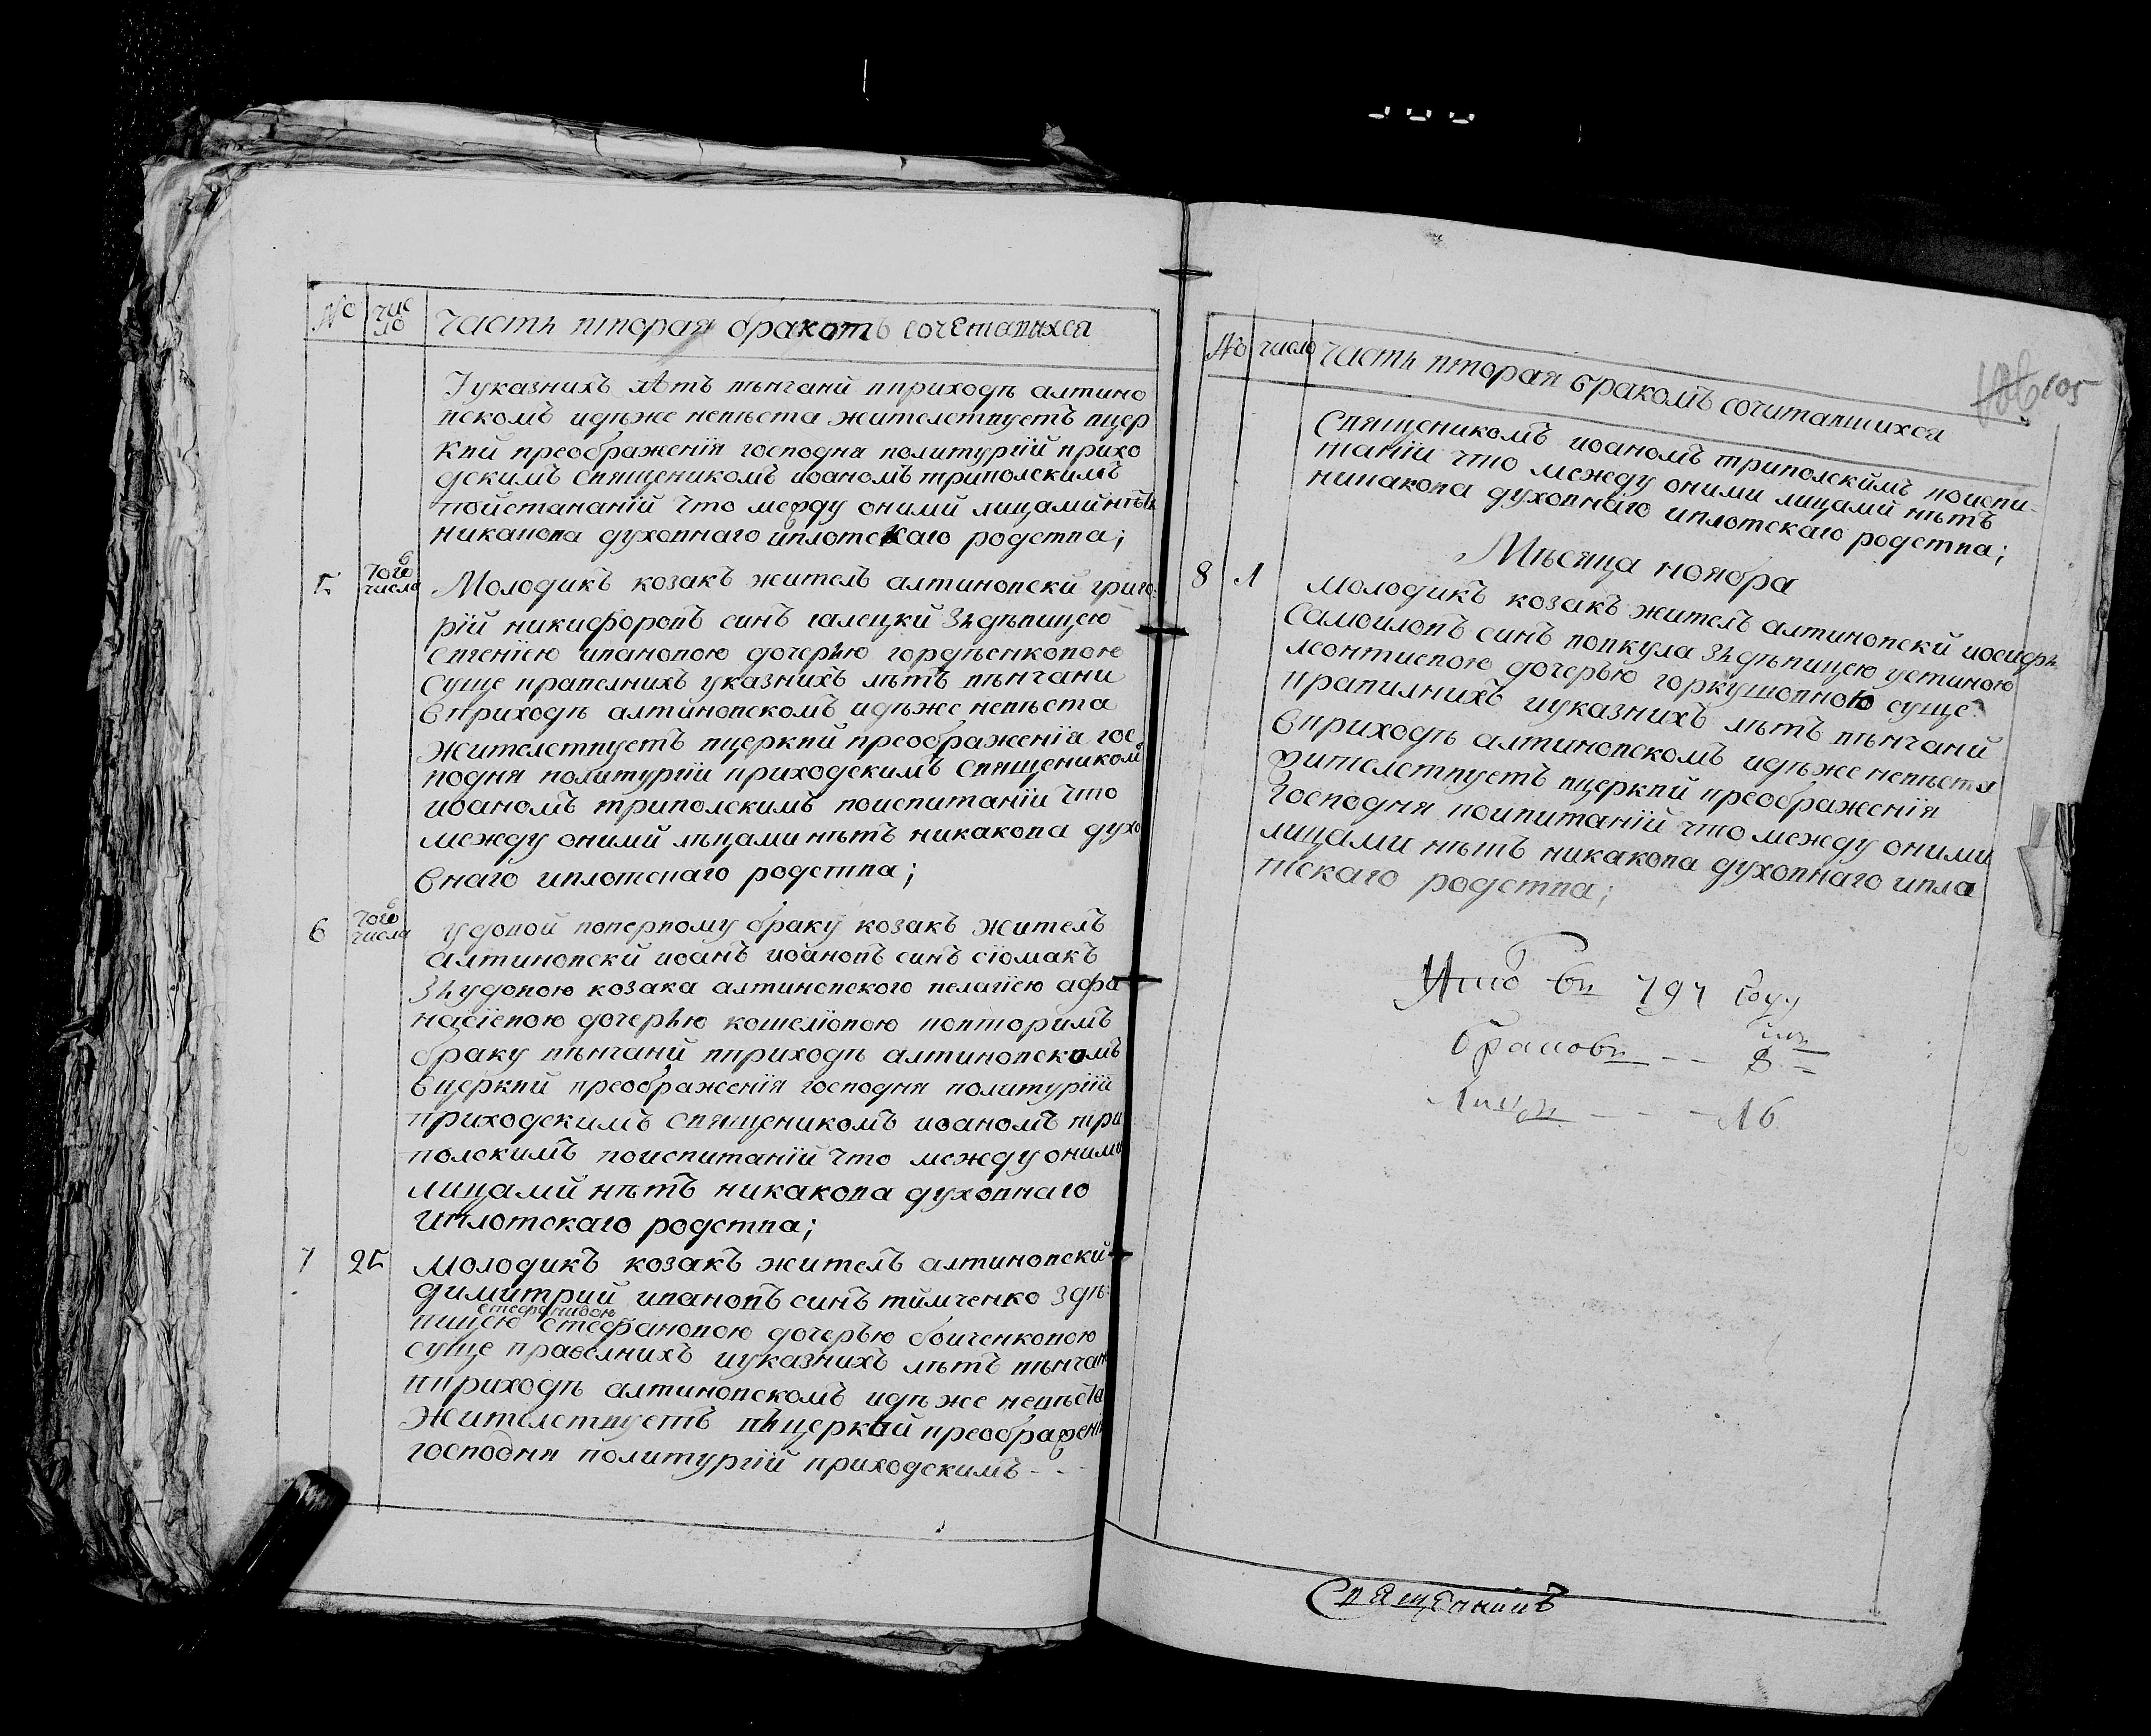 № чис
ло
Часть вторая бракомъ сочетавихся
Iуказнихъ лѣтъ вѣнчанй вприходѣ алтино
вскомъ идѣже невѣста жителствуетъ вцер
квй преображенїя господня политургїй прихо
дскимъ священикомъ иоаномъ триполскимъ
поистананїй что между онимй лицамй нѣтъ
никакова духовнаго иплотскаго родства;
5 того
числа
Молодикъ козакъ жителъ алтиновскй григо
рїй никифоровъ синъ галецкй зъдѣвицею
евгенїею ивановою дочерью гордѣенковою
суще правелнихъ указнихъ лѣтъ вѣнчани
вприходѣ алтиновскомъ идѣже невѣста
жителствуетъ вцерквй преображенїя гос
подня политургїи приходскимъ священиком
иоаномъ триполскимъ поиспитанїи что
между онимй лѣцами нѣтъ никакова духо
внаго иплотскаго родства;
6 того
числа
удовой поперному браку козакъ жителъ
алтиновскй иоанъ иоановъ синъ сїомакъ
зъудовою козака алтиновского пелагїею афа
насїевою дочерью кошелїовою повторимъ
браку вѣнчанй вприходѣ алтиновскомъ
вцерквй преображенїя господня политургїй
приходскимъ священикомъ иоаномъ три
полскимъ поиспитанїй что между оними
лицамй нѣтъ никакова духовнаго
иплотскаго родства;
7 25
молодикъ козакъ жителъ алтиновскй
димитрий ивановъ синъ тимченко здѣ
стефанидою
вицею стефановою дочерью боиченковою
суще правелнихъ иуказнихъ лѣтъ вѣнчан
вприходѣ алтиновскомъ идѣже невѣста
жителствуетъ въцерквй преображени
господня политургїй приходскимъ - - -
№ число Часть вторая бракомъ сочитавшихся
106 105
Священикомъ иоаномъ триполскимъ поиспи
танїи что между оними лицамй нѣтъ
никакова духовнаго иплотскаго родства;
Мѣсяца ноября
8 1
молодикъ козакъ жителъ алтиновскй иосифъ
самоиловъ синъ вовкула зъдѣвицею устиною
леонтиевою дочерью горкушовною суще
правилнихъ иуказнихъ лѣтъ вѣнчанй
вприходѣ алтиновскомъ идѣже невѣста
жителствуетъ вцерквй преображенїя
господня поипитанїй что между оними
лицами нѣтъ никакова духовнаго ипло
тскаго родства;
797 году
браковъ - - 8
- - - 16
Священникъ